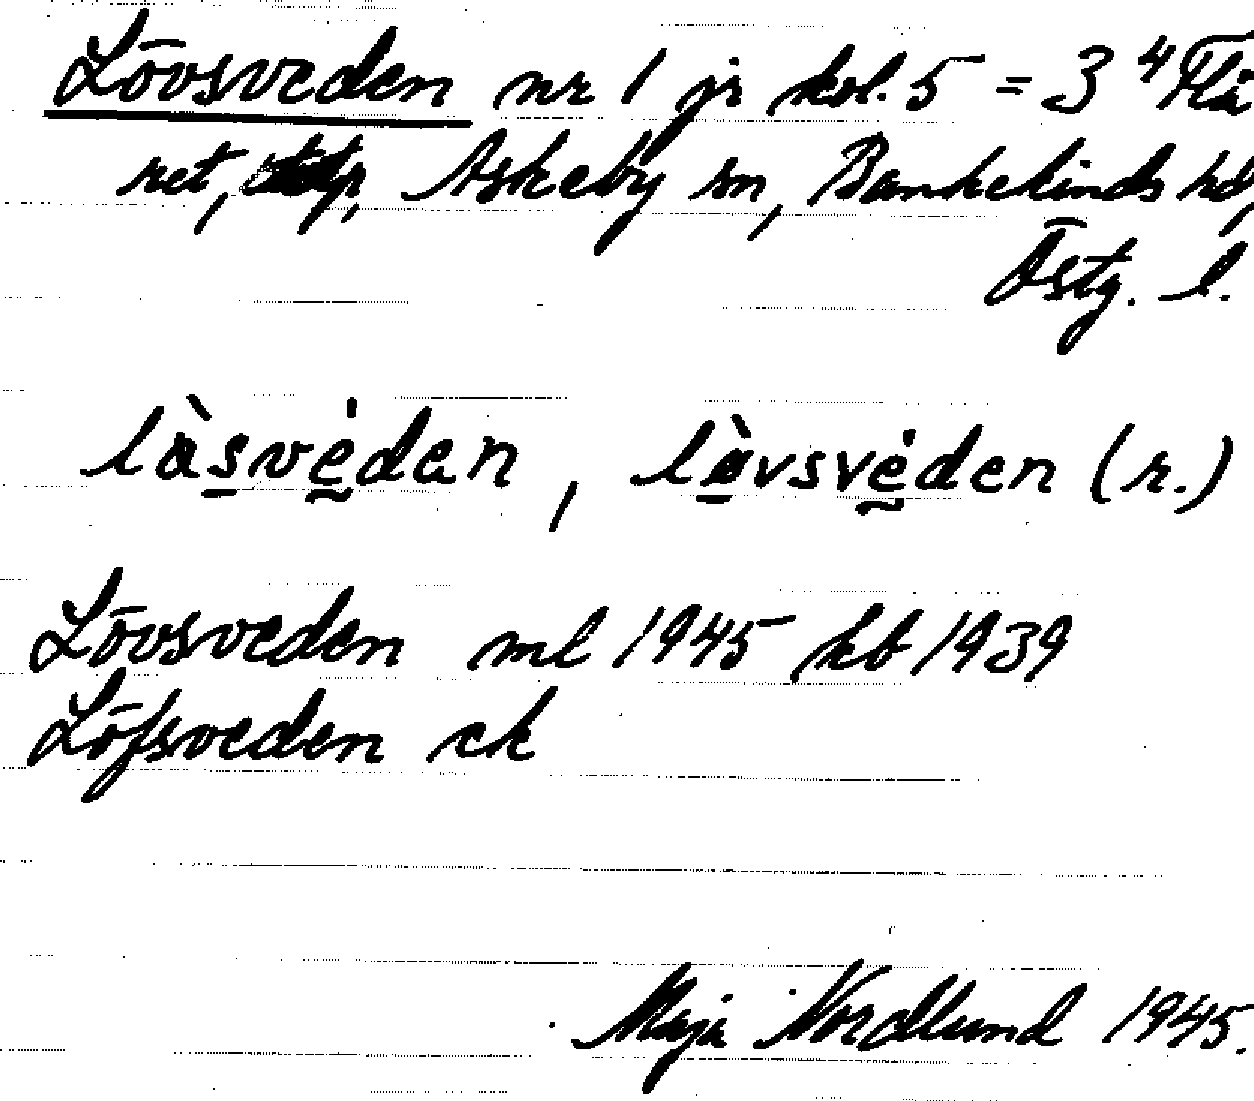 Lövsveden nr 1 jr kol. 5 = 3 4 Flä
ret, Askeby sn, Bankekinds hd,
Östg. l.
làsvéden, lèvsvéden (r.)
Lövsveden ml 1945 kb 1939
Löfsveden ek
Maja Nordlund 1945.